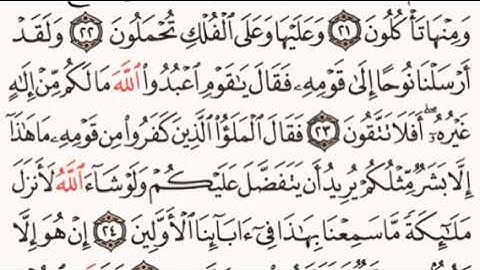 وَمِنْهَا تَأْكُلُونَ ٢١ وَعَلَيْهَا وَعَلَى الْفُلْكِ تُحْمَلُونَ ٢٢ وَلَقَدْ
أَرْسَلْنَا نُوحًا إِلَىٰ قَوْمِهِ فَقَالَ يَٰقَوْمِ اعْبُدُوا اللَّهَ مَا لَكُم مِّنْ إِلَٰهٍ
غَيْرُهُ أَفَلَا تَتَّقُونَ ٢٣ فَقَالَ الْمَلَؤُا الَّذِينَ كَفَرُوا مِن قَوْمِهِ مَا هَٰذَا
إِلَّا بَشَرٌ مِّثْلُكُمْ يُرِيدُ أَن يَتَفَضَّلَ عَلَيْكُمْ وَلَوْ شَاءَ اللَّهُ لَأَنزَلَ
مَلَٰئِكَةً مَّا سَمِعْنَا بِهَٰذَا فِي ءَابَائِنَا الْأَوَّلِينَ ٢٤ إِنْ هُوَ إِلَّا